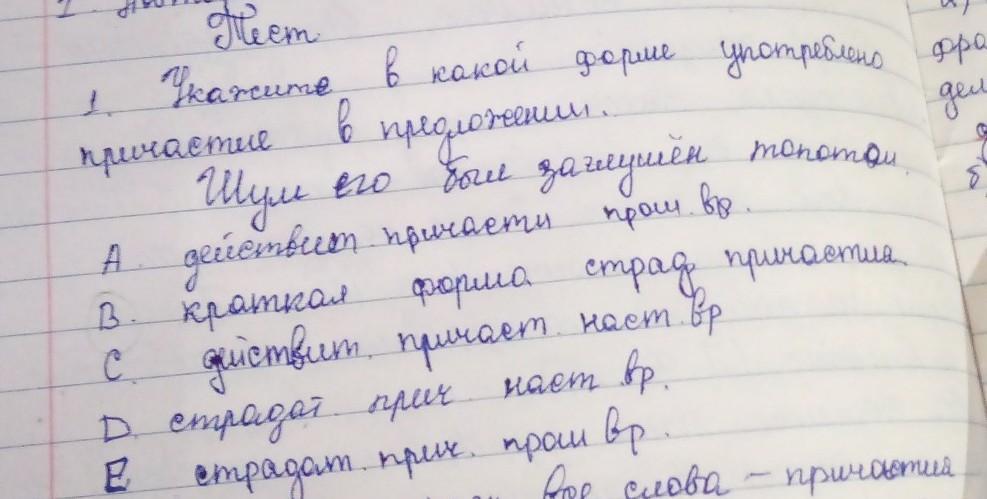 Тест
1. Укажите в какой форме употреблено
причастие в предложении.
Шум его был заглушён топотом.
A действит. причасти прош. вр.
B. краткая форма страд причастия.
C. действит. причаст. наст. вр
D. страдат. прич. наст вр.
E страдат. прич. прош вр.
все слова – причастия
фра
дел